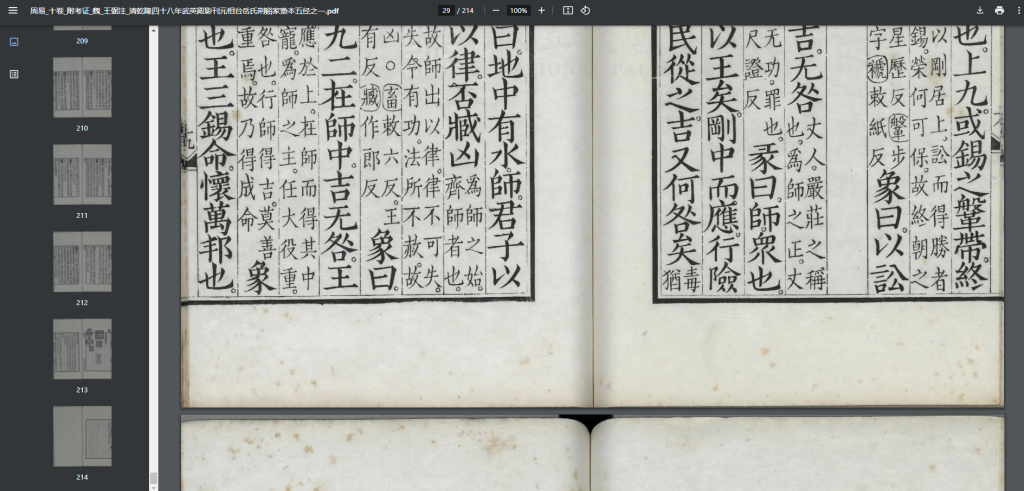 周易_十卷_附考证_魏_王弼注_清乾隆四十八年武英殿影刊元相台岳氏荆谿家塾本五经之一.pdf
29 / 214
100%
209
210
211
212
213
214
也。上九。或錫之鞶帶。終
以剛居上。訟而得勝者
錫。榮何可保。故終朝之
星歷反鞶步
字褫敕紙反
象曰。以訟
吉。无咎
丈人。嚴莊之稱
也。為師之正。丈
无功。罪也。
尺證反
彖曰。師。衆也。
以王矣。剛中而應。行險
民從之。吉又何咎矣
毒
猶
曰。地中有水。師。君子以
以律。否臧凶
為師之始
齊師者也。
故師出以律。律不可失。
失令有功。法所不赦。故
凶。○畜敕六反。王
有反臧作郎反
象曰。
九二。在師中。吉无咎。王
應於上。在師而得其中
寵。為師之主。任大役重。
咎也。行師得吉。莫善
重焉。故乃得成命
象
也。王三錫命。懷萬邦也。